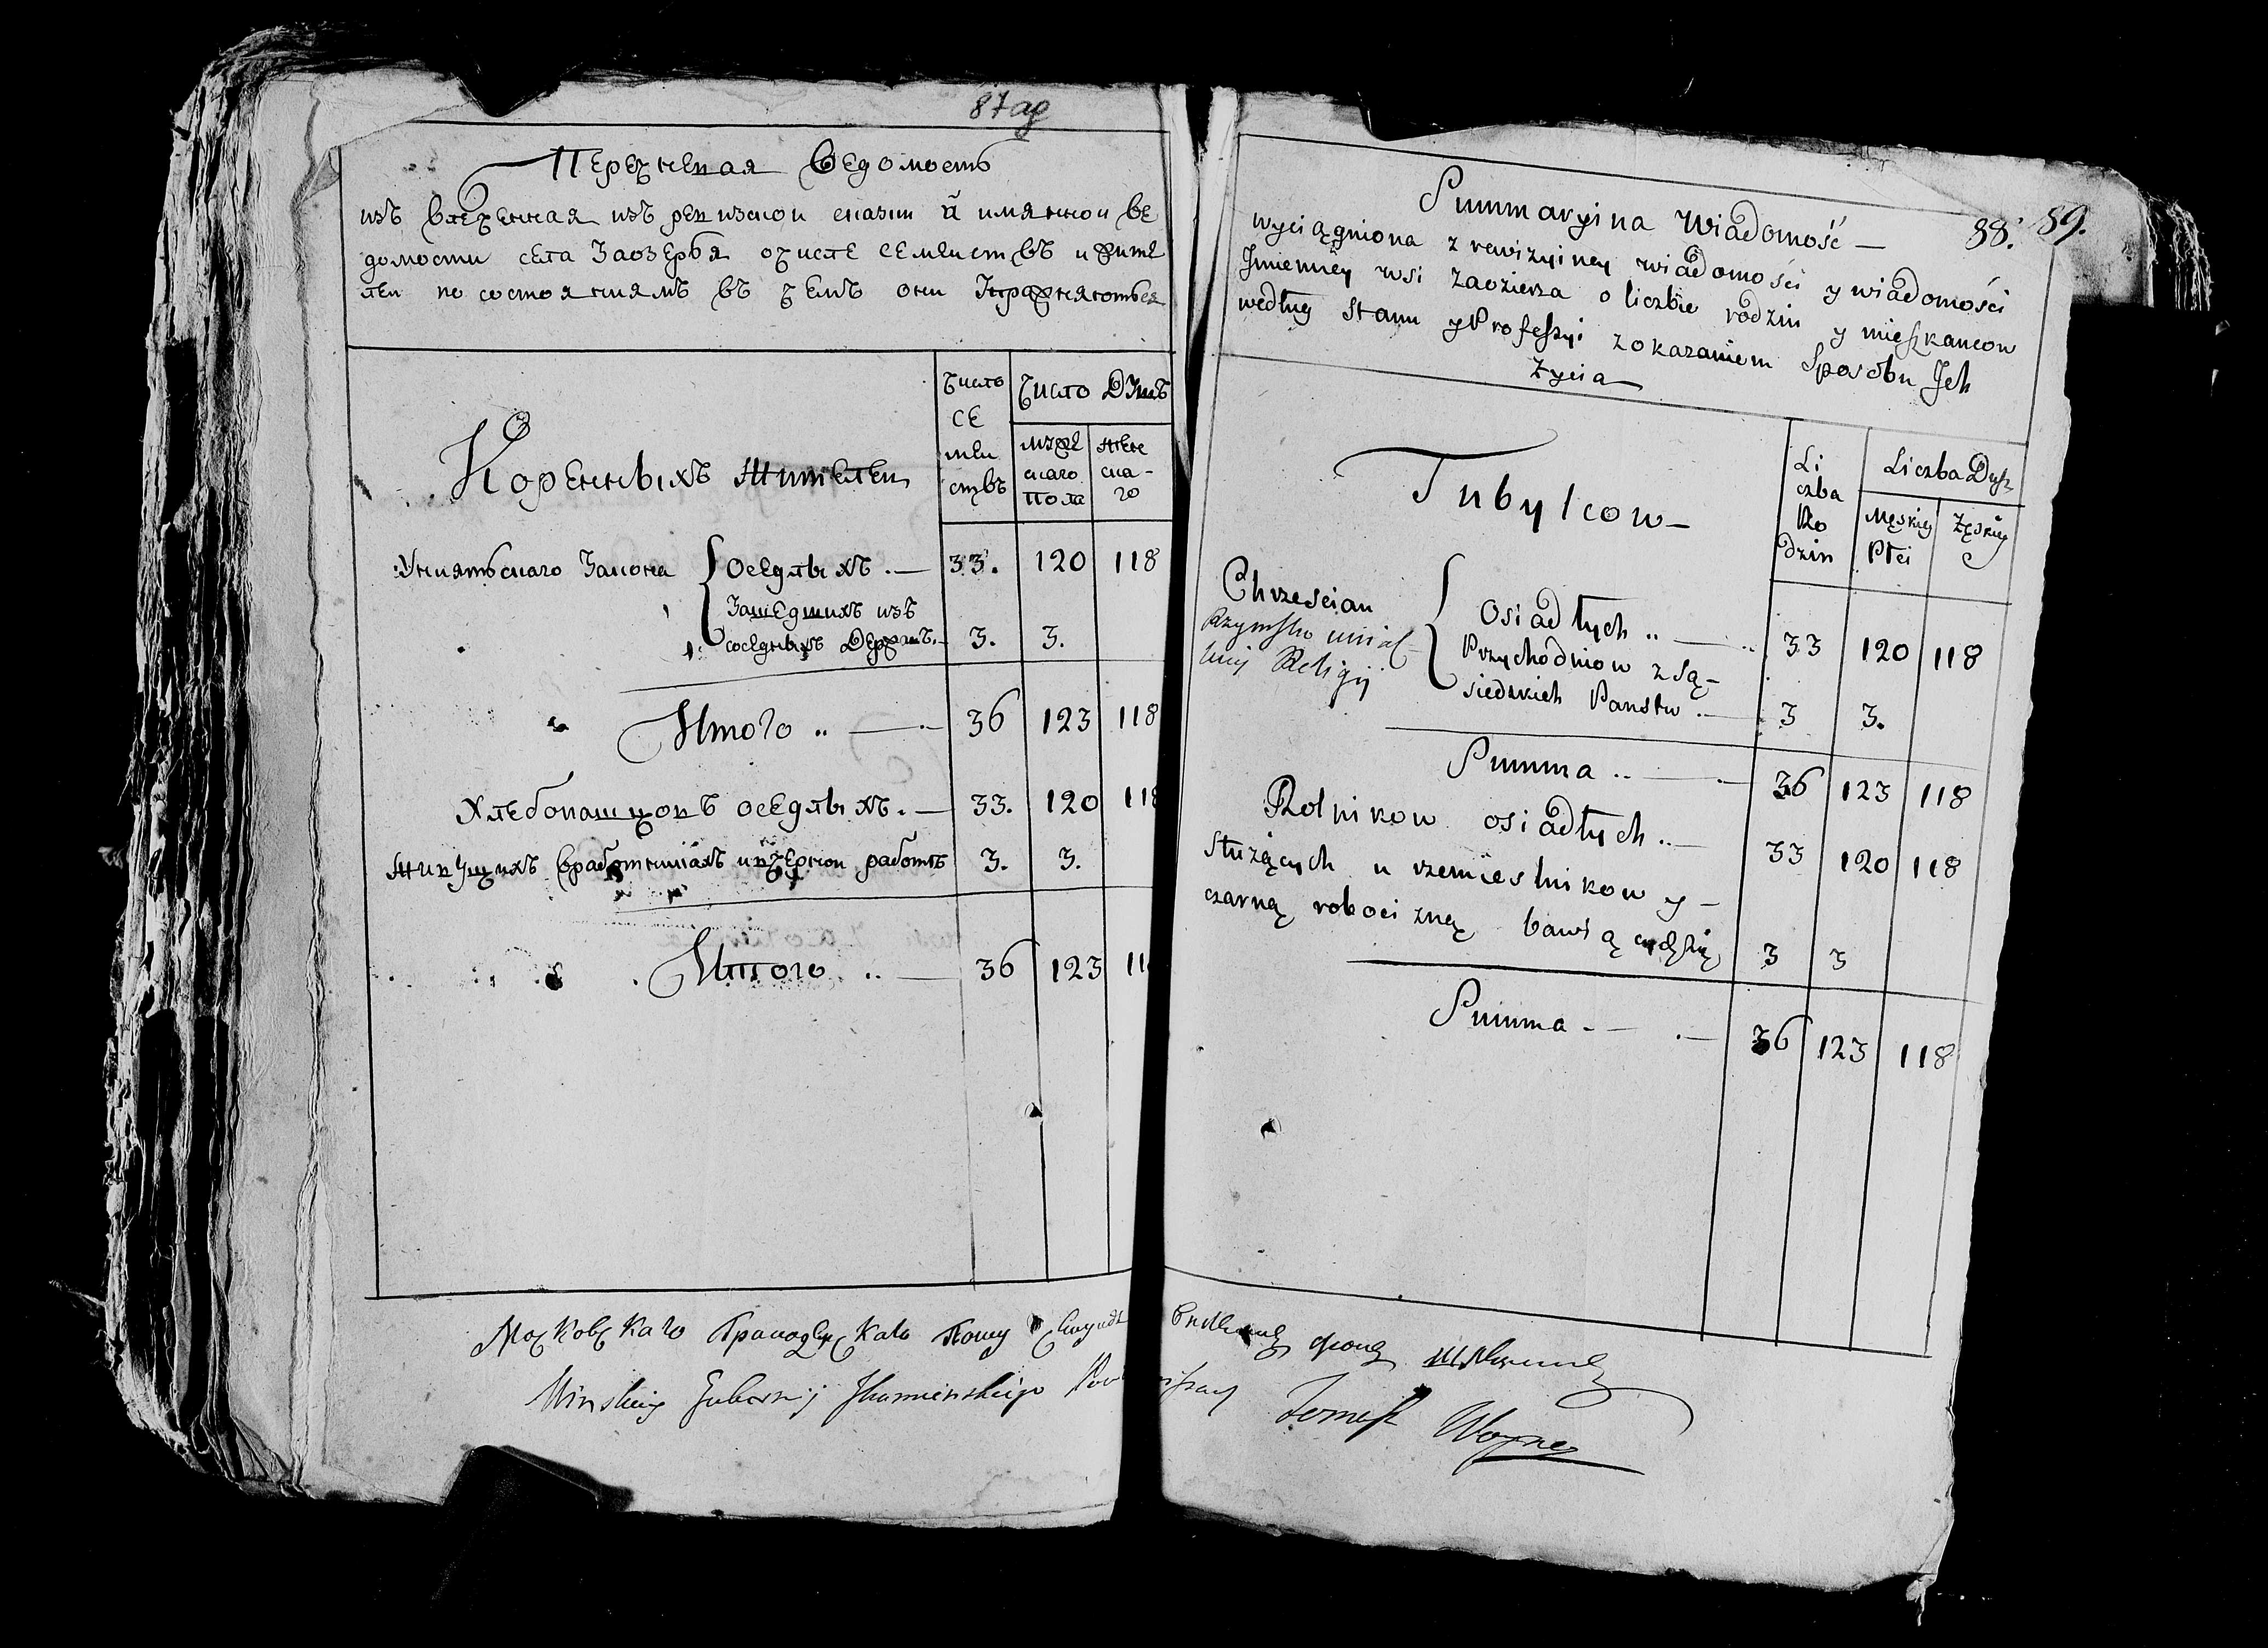 87 об
Перечневая Ведомость
изъ влеченная изъ ревизской сказки й имянной ве
домости села Заозерья о числе семействъ и жите
лей по состояниямъ въ чемъ они упражняютьея
Коренныхъ жителей
число
се
мей
ствъ
Число Душъ
муже
скаго
пола
женс
ка-
го
Униятьскаго Закона
Оседлыхъ .— 33. 120 118
Зашедшихъ изъ
соседныхъ Державъ.— 3. 3.
Итого .. —.— 36 123 118
Хлебопашцовъ оседлыхъ .— 33. 120 118
живущихъ в работникахъ и в черной работе 3. 3.
Итого .. — 36 123 11
Summaryina Wiadomość —
88. 89.
wyciągniona z rewizyiney wiadomości y wiadomości
Jmienney wsi Zaozierza o liczbie rodzin y mieszkancow
według stanu y Professyi z okazaniem Sposobu Jch
życia—
Tubylcow—
Li
czba
Ro
dzin
Liczba Dusz
Męskiey
Płci
Zęskiey
Chrzescian
Rzymsko uniat
skiej Religij
Osiadłych .. — .. 33 120 118
Przychodniow z Są-
siedzkich Panstw .— 3 3.
Summa .. —.— 36 123 118
Rolnikow osiadłych ..— 33 120 118
służących u rzemieslnikow y —
czarną robocizną bawiących się 3 3
Summa - — .— 36 123 118
Minskiey Gubernij Jhumenskiego